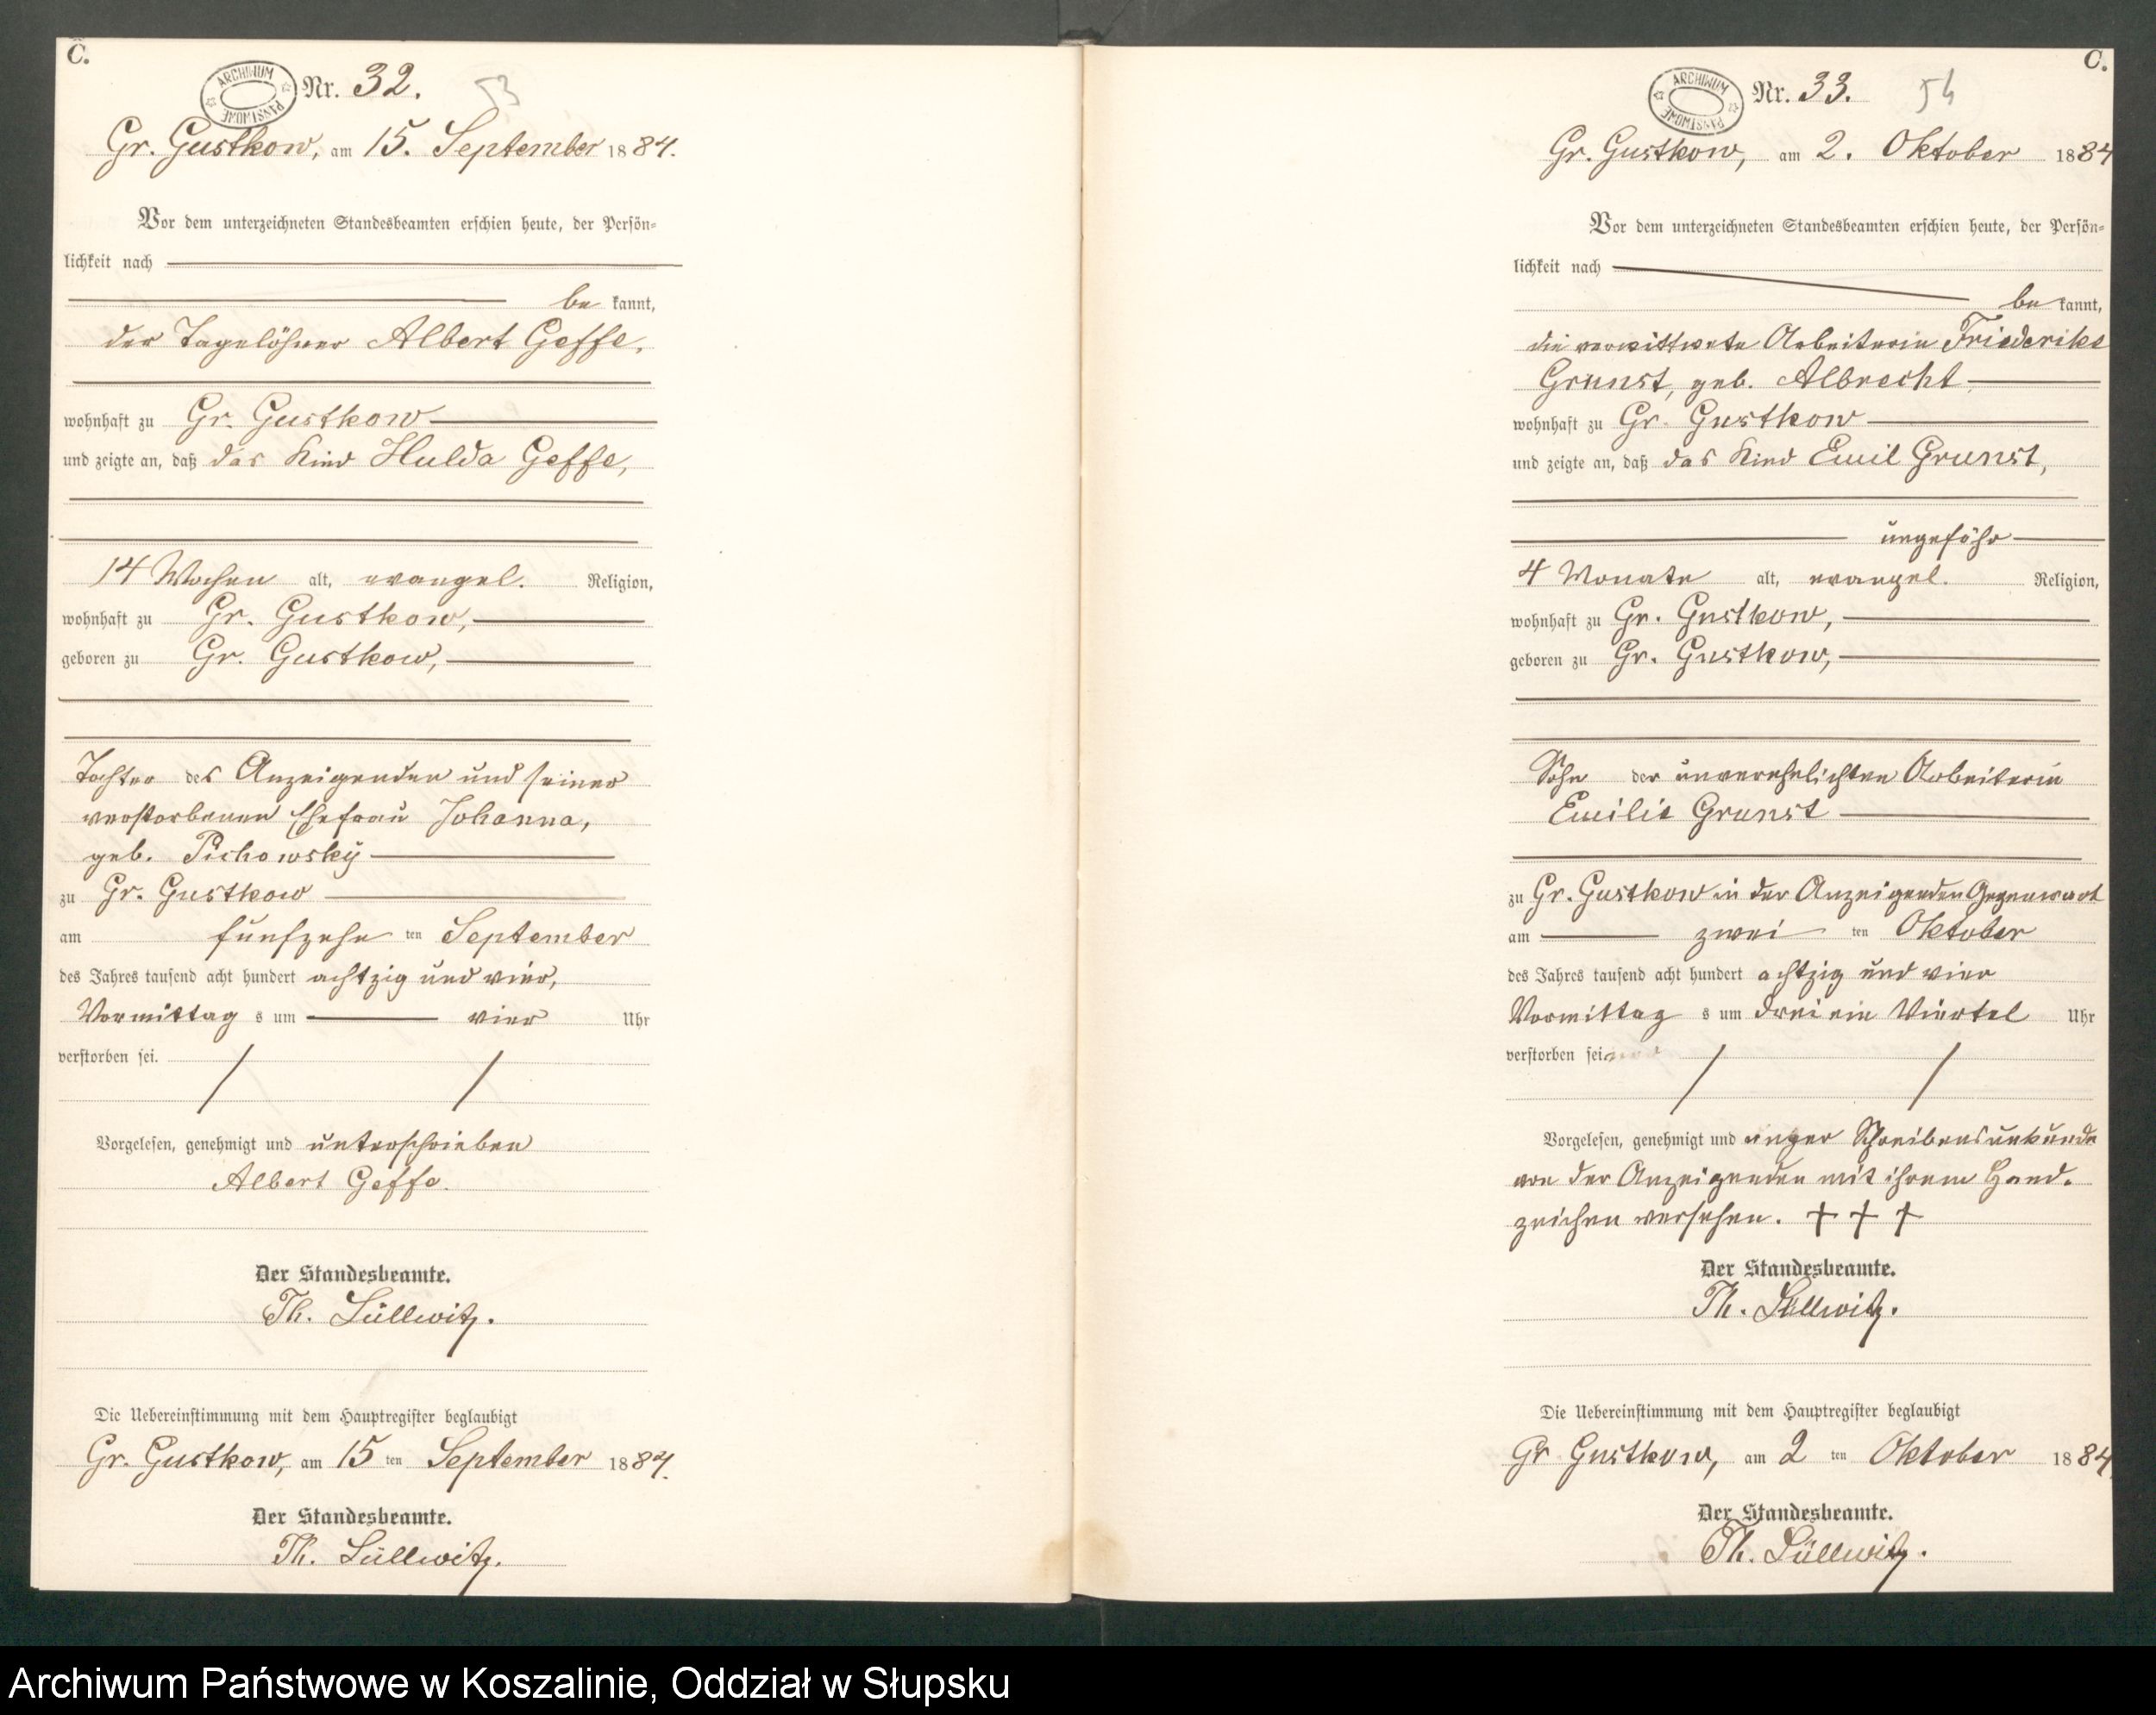 C.
ARCHIWUM PAŃSTWOWE
Nr. 32.
53
Gr. Gustkow, am 15. September 1884.
Vor dem unterzeichneten Standesbeamten erschien heute, der Persön-
lichkeit nach
be kannt,
der Tagelöhner Albert Geffe,
wohnhaft zu Gr. Gustkow
und zeigte an, daß das Kind Hulda Geffe,
14 Wochen alt, evangel. Religion,
wohnhaft zu Gr. Gustkow,
geboren zu Gr. Gustkow,
Tochter des Anzeigenden und seiner
verstorbenen Ehefrau Johanna,
geb. Pichowsky
zu Gr. Gustkow
am fünfzehn ten September
des Jahres tausend acht hundert achtzig und vier,
Vormittag s um vier Uhr
verstorben sei.
Vorgelesen, genehmigt und unterschrieben
Albert Geffe.
Der Standesbeamte.
Th. Süllwitz.
Die Uebereinstimmung mit dem Hauptregister beglaubigt
Gr. Gustkow, am 15 ten September 1884.
Der Standesbeamte.
Th. Süllwitz.
C.
ARCHIWUM PAŃSTWOWE
Nr. 33.
54
Gr. Gustkow, am 2. Oktober 1884
Vor dem unterzeichneten Standesbeamten erschien heute, der Persön-
lichkeit nach
be kannt,
die verwittwete Arbeiterin Friederike
Grunst, geb. Albrecht
wohnhaft zu Gr. Gustkow
und zeigte an, daß das Kind Emil Grunst,
ungefähr
4 Monate alt, evangel. Religion,
wohnhaft zu Gr. Gustkow,
geboren zu Gr. Gustkow,
Sohn der unverehelichten Arbeiterin
Emilie Grunst
zu Gr. Gustkow in der Anzeigenden Gegenwart
am zwei ten Oktober
des Jahres tausend acht hundert achtzig und vier
Vormittag s um drei ein Viertel Uhr
verstorben sei
Vorgelesen, genehmigt und wegen Schreibensunkunde
von der Anzeigenden mit ihrem Hand-
zeichen versehen. + + +
Der Standesbeamte.
Th. Süllwitz.
Die Uebereinstimmung mit dem Hauptregister beglaubigt
Gr Gustkow, am 2 ten Oktober 1884
Der Standesbeamte.
Th. Süllwitz.
Archiwum Państwowe w Koszalinie, Oddział w Słupsku